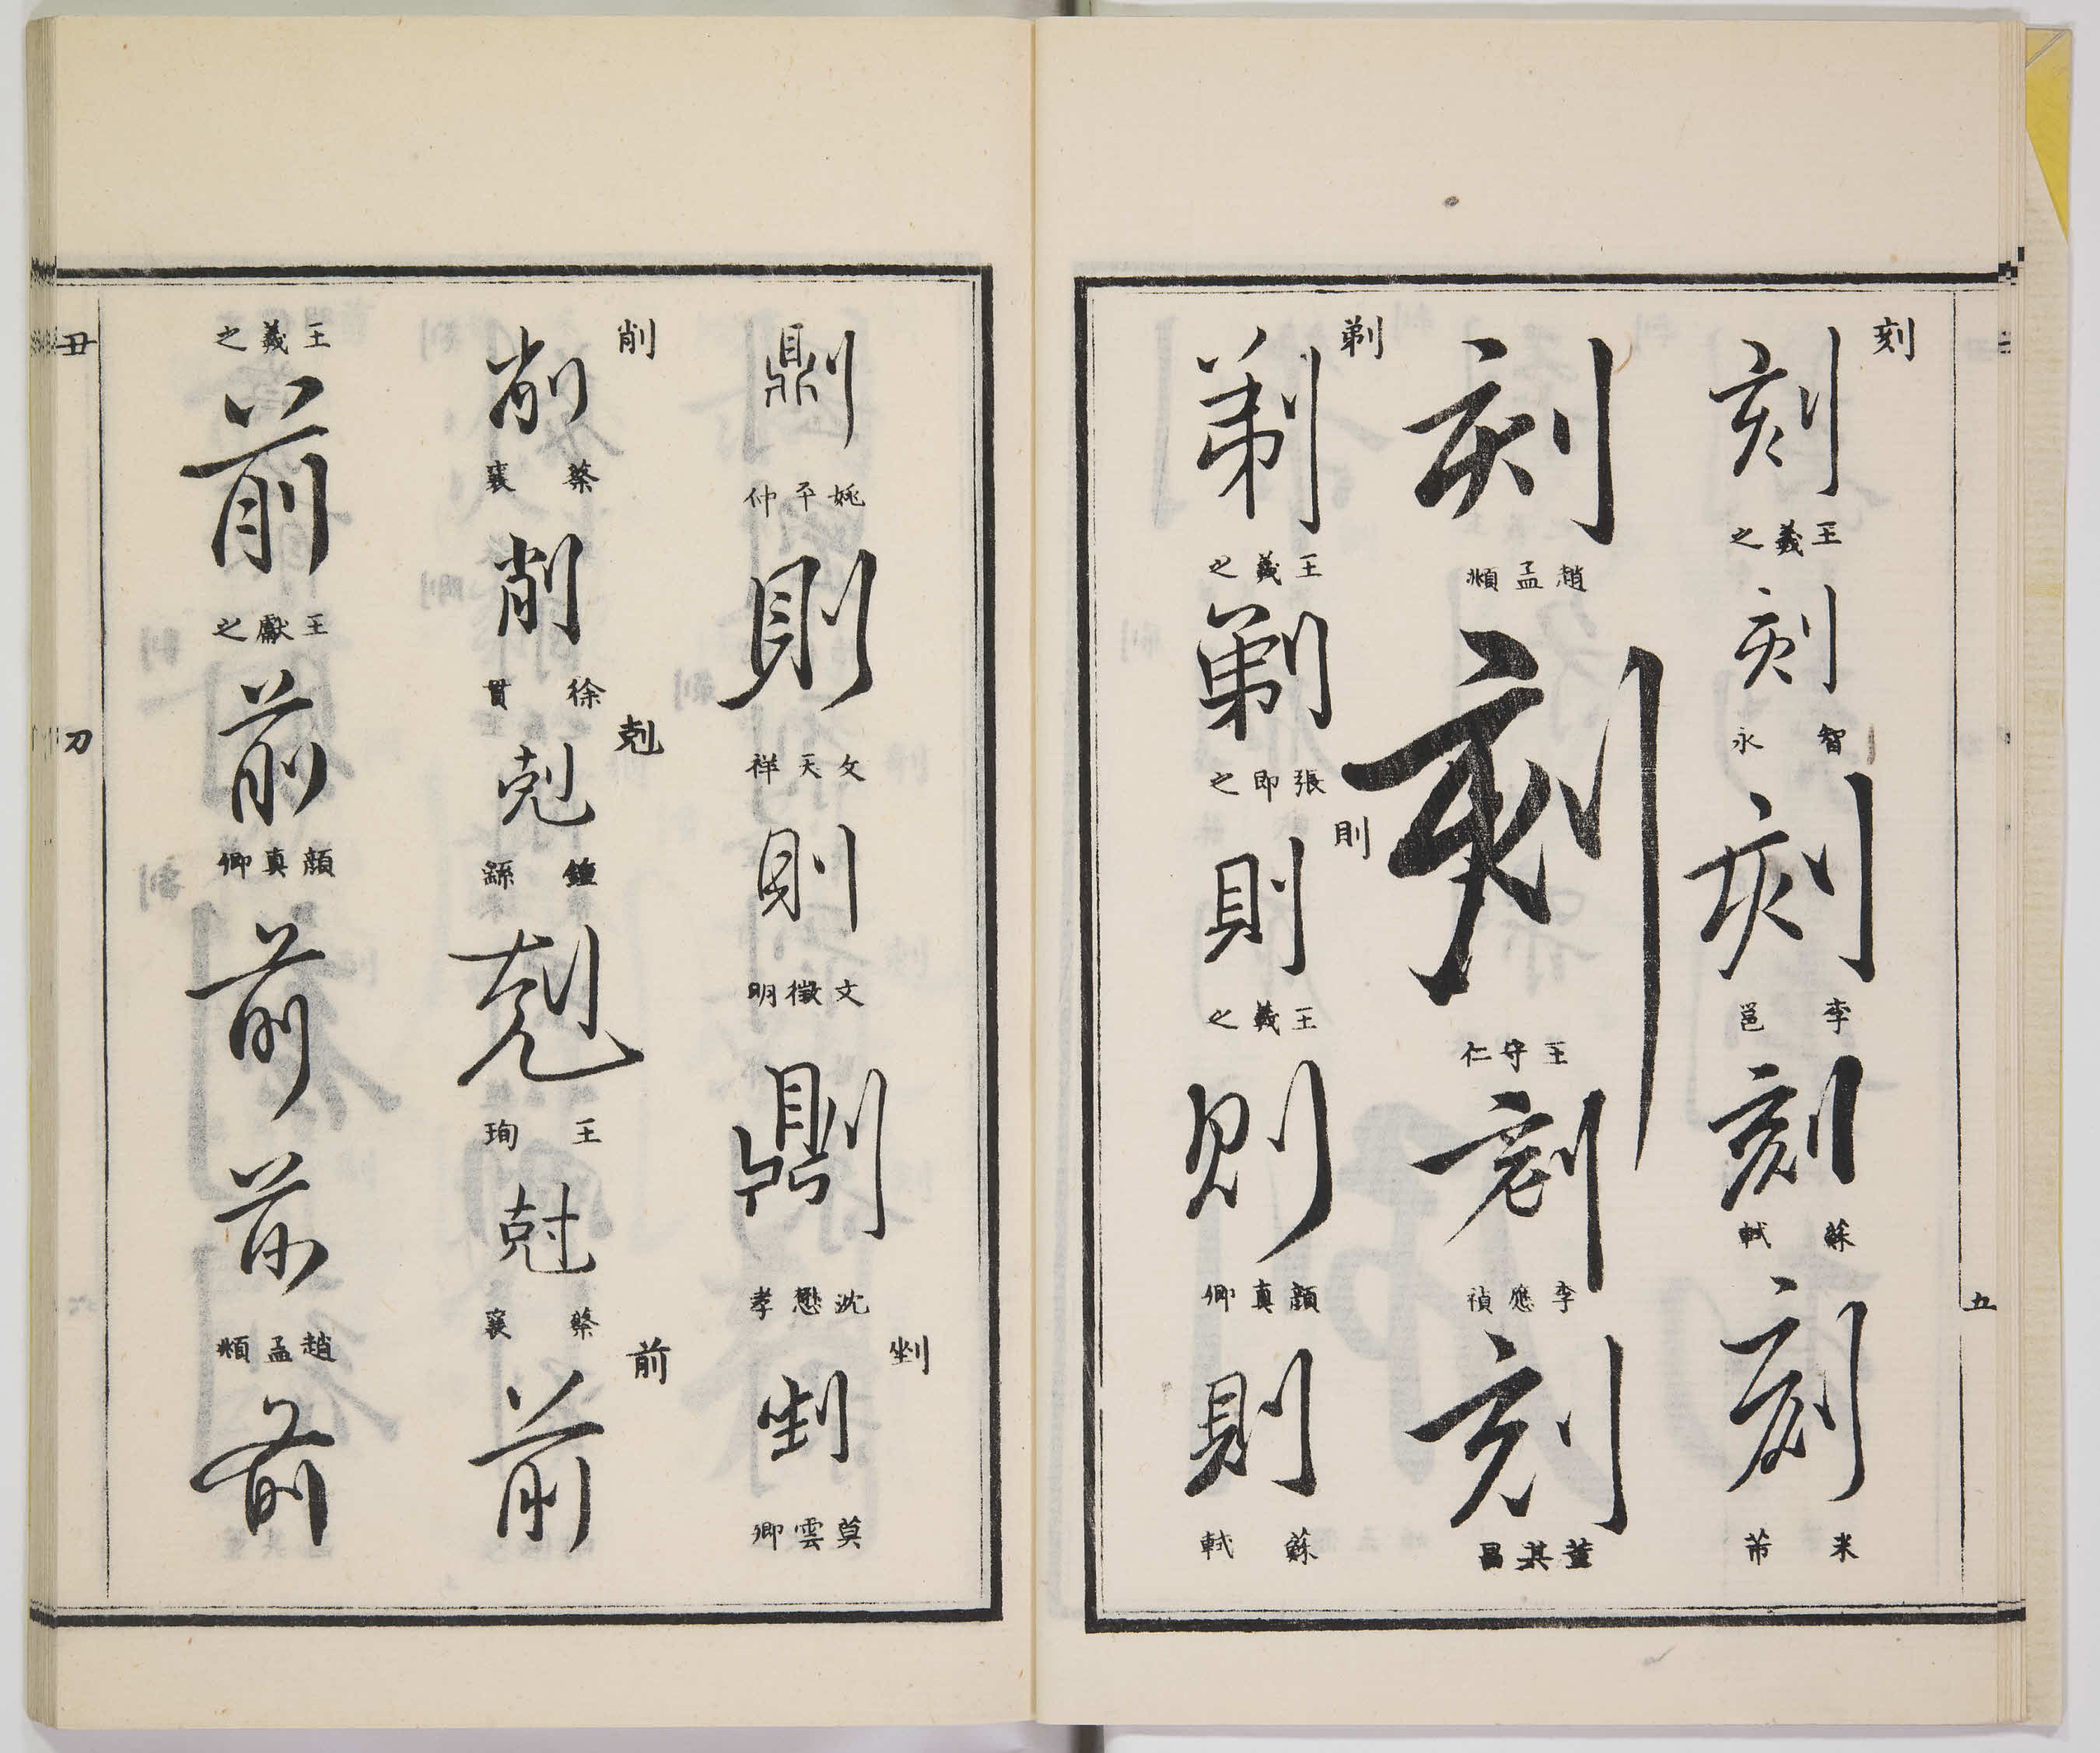 五
刻
刻
王羲之
刻
智永
刻
李邕
刻
蘇軾
刻
米芾
刻
趙孟頫
刻
王守仁
刻
李應禎
刻
董其昌
剃
剃
王羲之
剃
張即之
則
則
王羲之
則
顏真卿
則
蘇軾
𠟭
姚平仲
則
文天祥
則
文徵明
𠟭
沈懋孝
剉
剉
莫雲卿
削
削
蔡襄
削
徐貫
剋
剋
鍾繇
剋
王珣
尅
蔡襄
前
前
王羲之
前
王獻之
前
顏真卿
前
前
趙孟頫
前
丑
刀